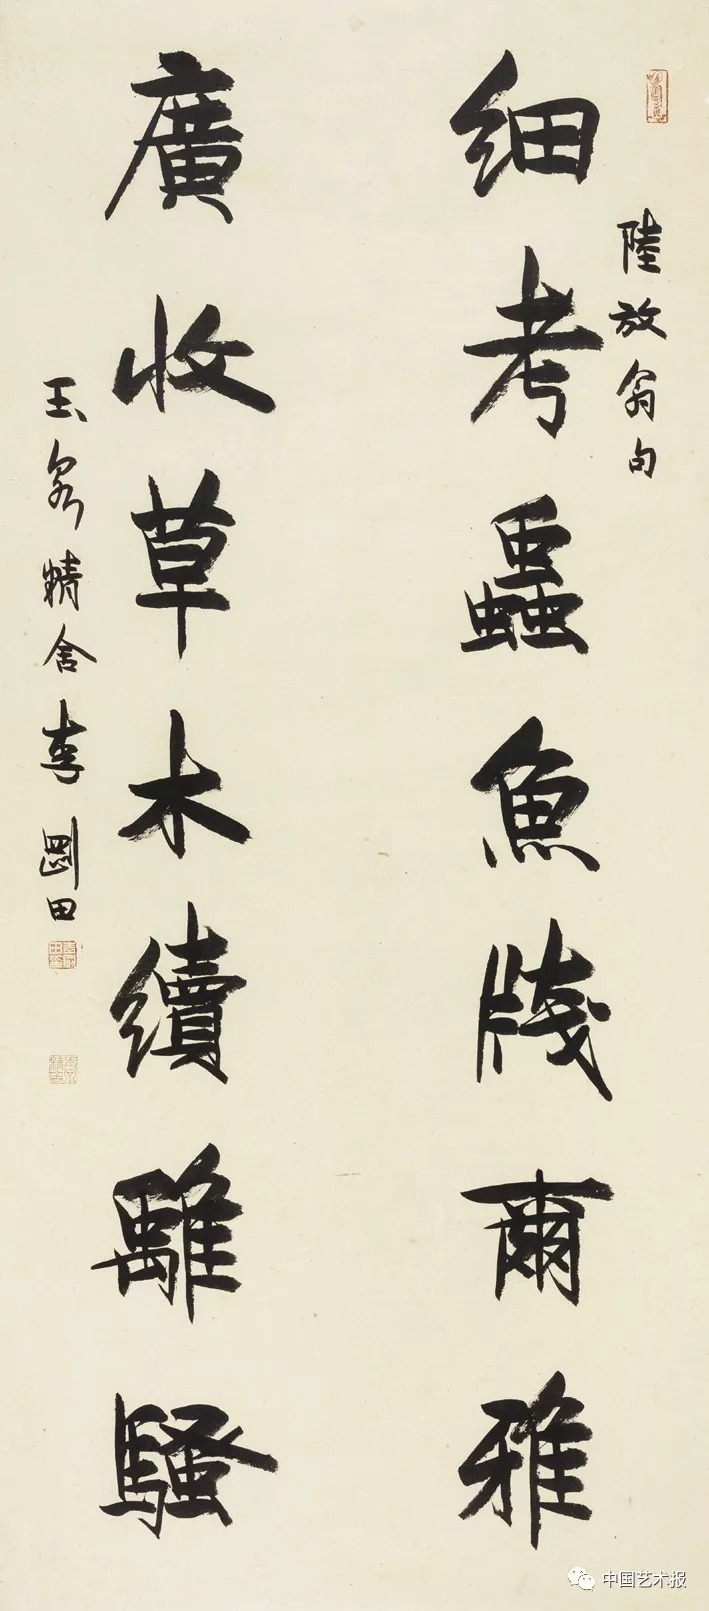 陸放翁句
細考蟲魚牋爾雅
廣收草木續離騷
玉泉精舍李剛田
中国艺术报